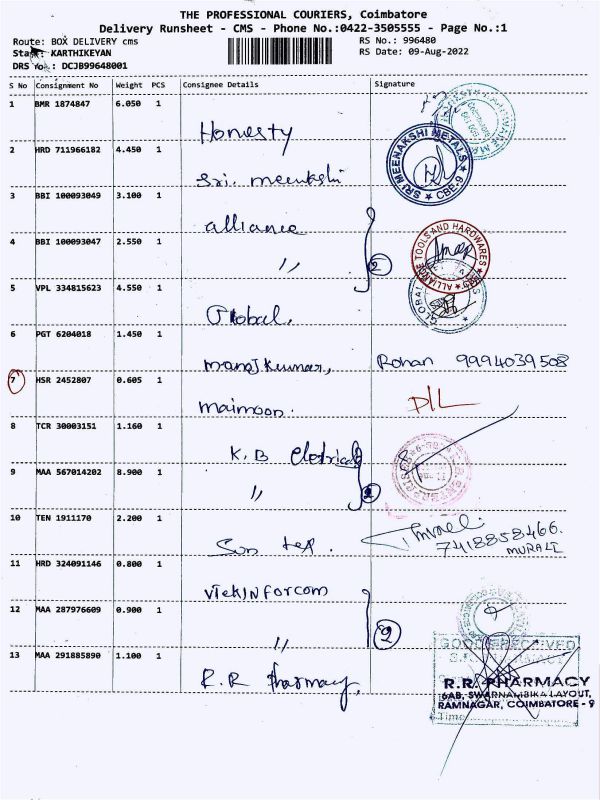 THE PROFESSIONAL COURIERS, Coimbatore
Delivery Runsheet - CMS - Phone No.:0422-3505555 - Page No.:1
Route: BOX DELIVERY cms
RS No.: 996480
KARTHIKEYAN
RS Date: 09-Aug-2022
DRS No.: DCJB99648001
S No Consignment No Weight PCS Consignee Details Signature
1 BMR 1874847 6.050 1
Honesty
2 HRD 711966182 4.450 1
Sri. meenakshi
SRI MEENAKSHI METALS
CBE-9
3 BBI 100093049 3.100 1
alliance
4 BBI 100093047 2.550 1
" 2
ALLIANCE TOOLS AND HARDWARES
CBE
5 VPL 334815623 4.550 1
Global,
GLOBAL
6 PGT 6204018 1.450 1
manoj kumar, Rohan 9994039508
7 HSR 2452807 0.605 1
maimoon. D/L
8 TCR 30003151 1.160 1
K. B eletricals
9 MAA 567014202 8.900 1
" 2
10 TEN 1911170 2.200 1
Sun tex. 7418858466.
MURALI
11 HRD 324091146 0.800 1
12 MAA 287976609 0.900 1
" 2
GOODS RECEIVED
13 MAA 291885890 1.100 1
R.R Pharmacy,
R.R. PHARMACY
6AB, SWARNAMBIKA LAYOUT,
RAMNAGAR, COIMBATORE - 9
Time